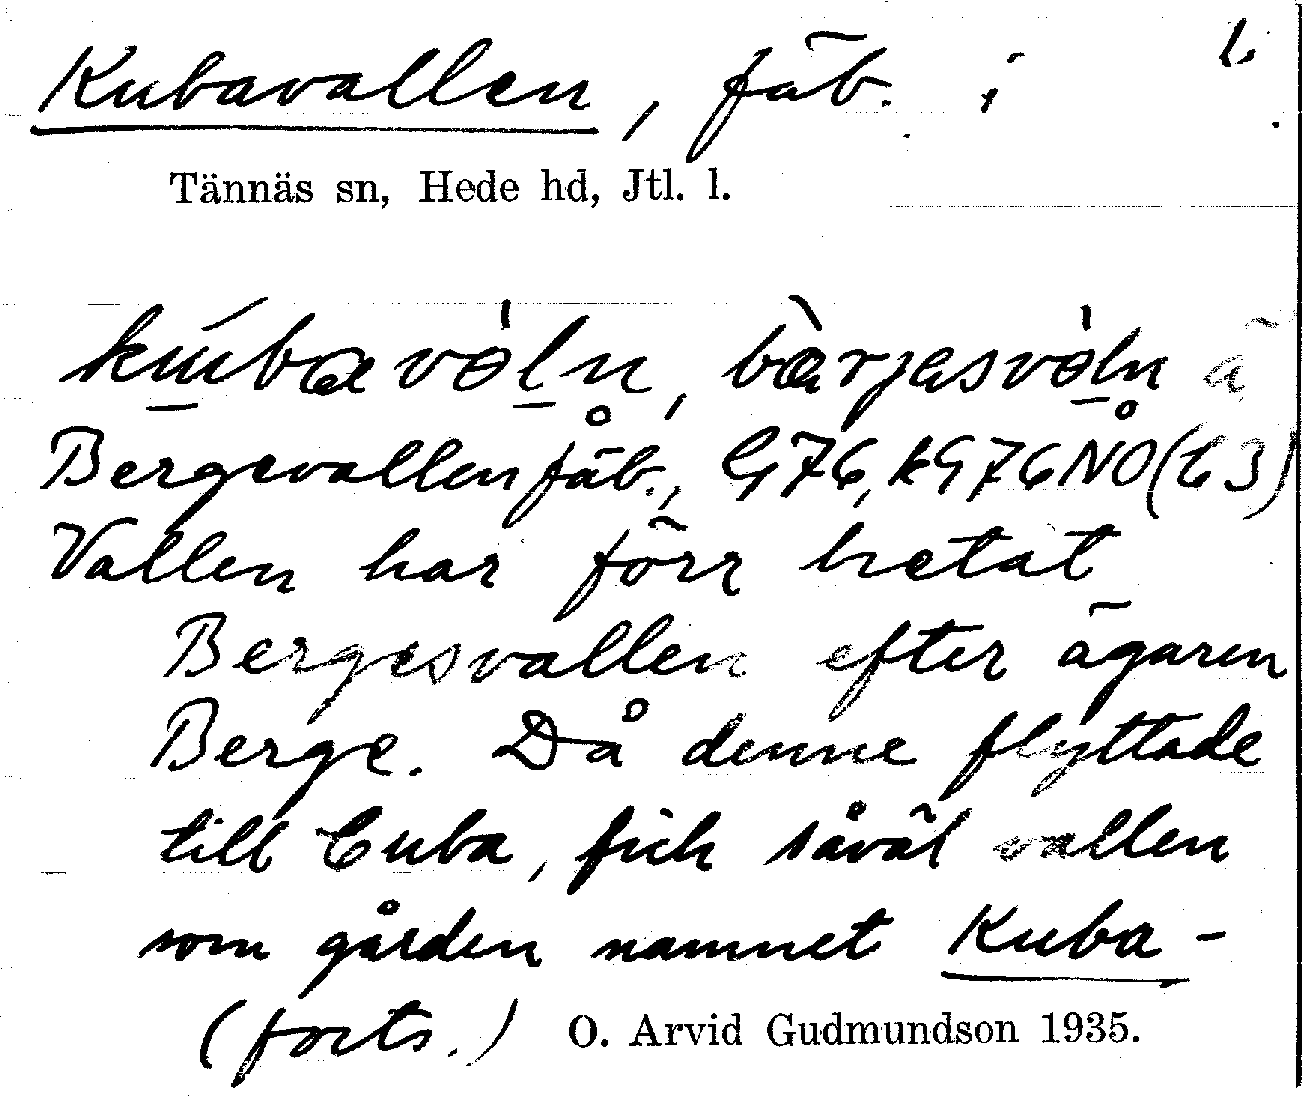 Kubavallen, fäb. i
Tännäs sn, Hede hd, Jtl. l.
Bergevallen fäb., G76, kG76NO (63)
Vallen har förr hetat
Bergesvallen efter ägaren
Berge. Då denne flyttade
till Cuba, fick såväl vallen
som gården namnet Kuba-
(forts.) O. Arvid Gudmundson 1935.